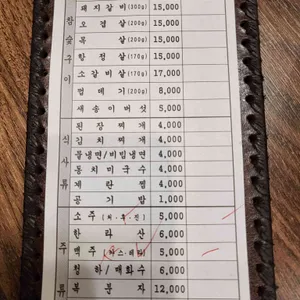 숯불구이
돼지갈비(300g) 15,000
오겹살(200g) 15,000
목살(200g) 15,000
항정살(170g) 15,000
소갈비살(170g) 17,000
껍데기(200g) 8,000
새송이버섯 5,000
식사류
된장찌개 4,000
김치찌개 4,000
물냉면/비빔냉면 4,000
동치미국수 4,000
계란찜 4,000
공기밥 1,000
주류
소주 5,000
한라산 6,000
맥주 5,000
청하/매화수 6,000
복분자 12,000